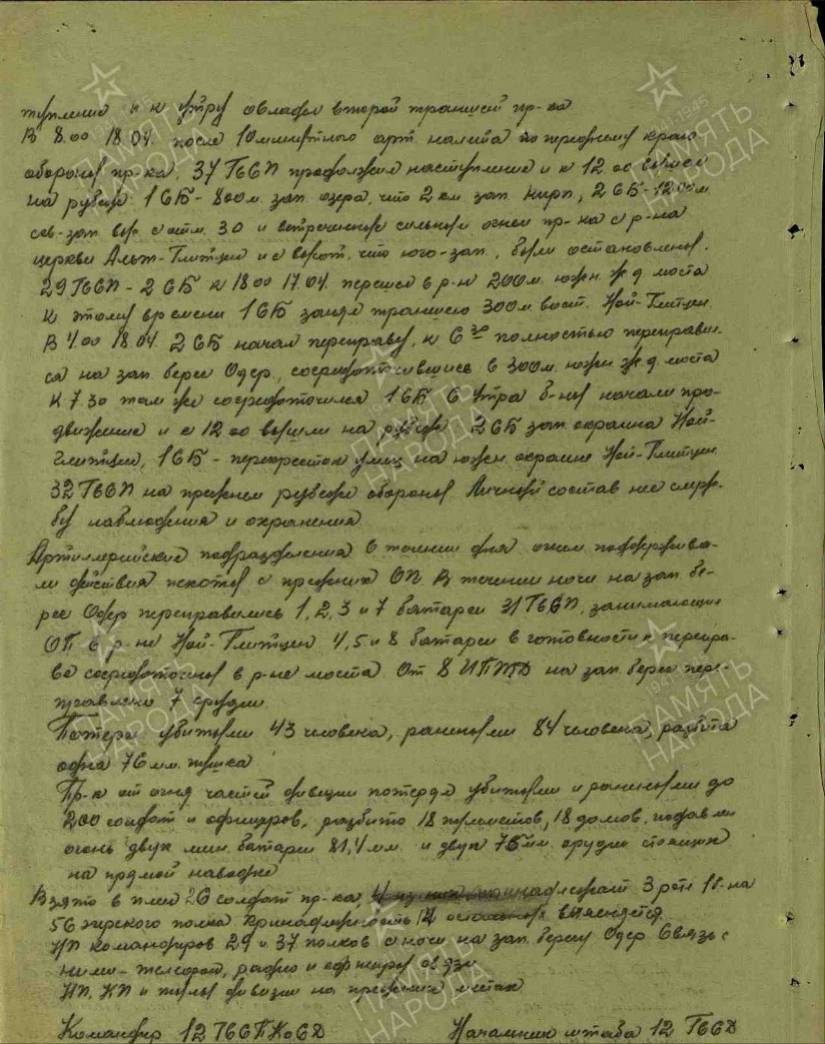 тупление и к утру овладел второй траншеей пр-ка
В 8.00 18.04. после 10 минутного арт. налета по переднему краю
обороны пр-ка, 37 ГвСП продолжил наступление и к 12.00 вышел
на рубеж 1 СБ - 800 м. зап. озера, что 2 км зап. Кирп, 2 СБ - 1200 м
сев-зап. выс. с отм. 3.0 и встреченные сильным огнем пр-ка с р-на
церкви Альт-Глитцен и с высот, что юго-зап., были остановлены.
29 ГвСП - 2 СБ к 18.00 17.04. перешел в р-н 200 м. южн. ж.д. моста
К этому времени 1 СБ занял траншею 300 м вост. Ной-Глитцен.
В 4.00 18.04. 2 СБ начал переправу, к 6 30 полностью переправил-
ся на зап. берег Одер, сосредоточившись в 300 м. южн. ж.д. моста
К 7.30 там же сосредоточился 1 СБ. С утра б-ны начали про-
движение и к 12.00 вышли на рубеж 2 СБ зап. окраина Ной-
Глитцен, 1 СБ - перекресток улиц на южн. окраине Ной-Глитцен.
32 ГвСП на прежнем рубеже обороны. Личный состав нес служ-
бу наблюдения и охранения
Артиллерийские подразделения в течении дня огнем поддержива-
ли действия пехоты с прежних ОП. В течении ночи на зап. бе-
рег Одер переправились 1, 2, 3 и 7 батареи 31 ГвСП, занимающие
ОП в р-не Ной-Глитцен. 4, 5 и 8 батареи в готовности к перепра-
ве сосредоточены в р-не моста. От 8 ИПТД на зап. берег пере-
правлено 7 орудий.
Потери: убитыми 43 человека, ранеными 84 человека, разбита
одна 76 мм. пушка
Пр-к от огня частей дивизии потерял убитыми и ранеными до
200 солдат и офицеров, разбито 18 пулеметов, 18 домов, подавлен
огонь двух мин. батарей 81,4 мм и двух 75 мм. орудий стоящих
на прямой наводке
Взято в плен 26 солдат пр-ка, 3 роте 1 б-на
56 егерского полка принадлежность 14 остальных выясняется.
НП командиров 29 и 37 полков с ночи на зап. берегу Одер. Связь с
ними - телефон, радио и офицеры связи
НП, КП и тылы дивизии на прежних местах
Командир 12 ГвСПКСД Начальник штаба 12 ГвСД